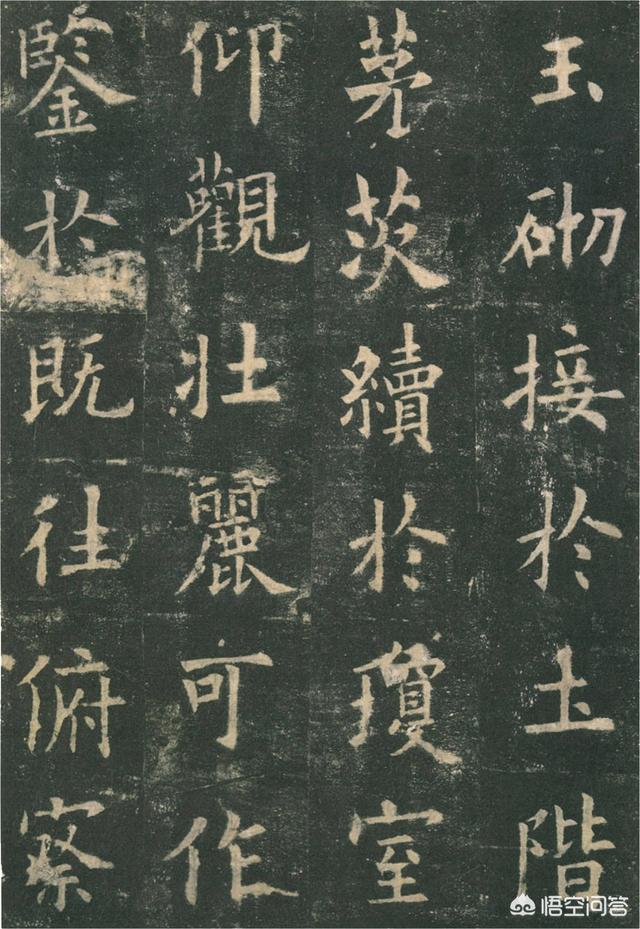 玉砌接於土階
茅茨續於瓊室
仰觀壯麗可作
鑒於既往俯察
悟空问答